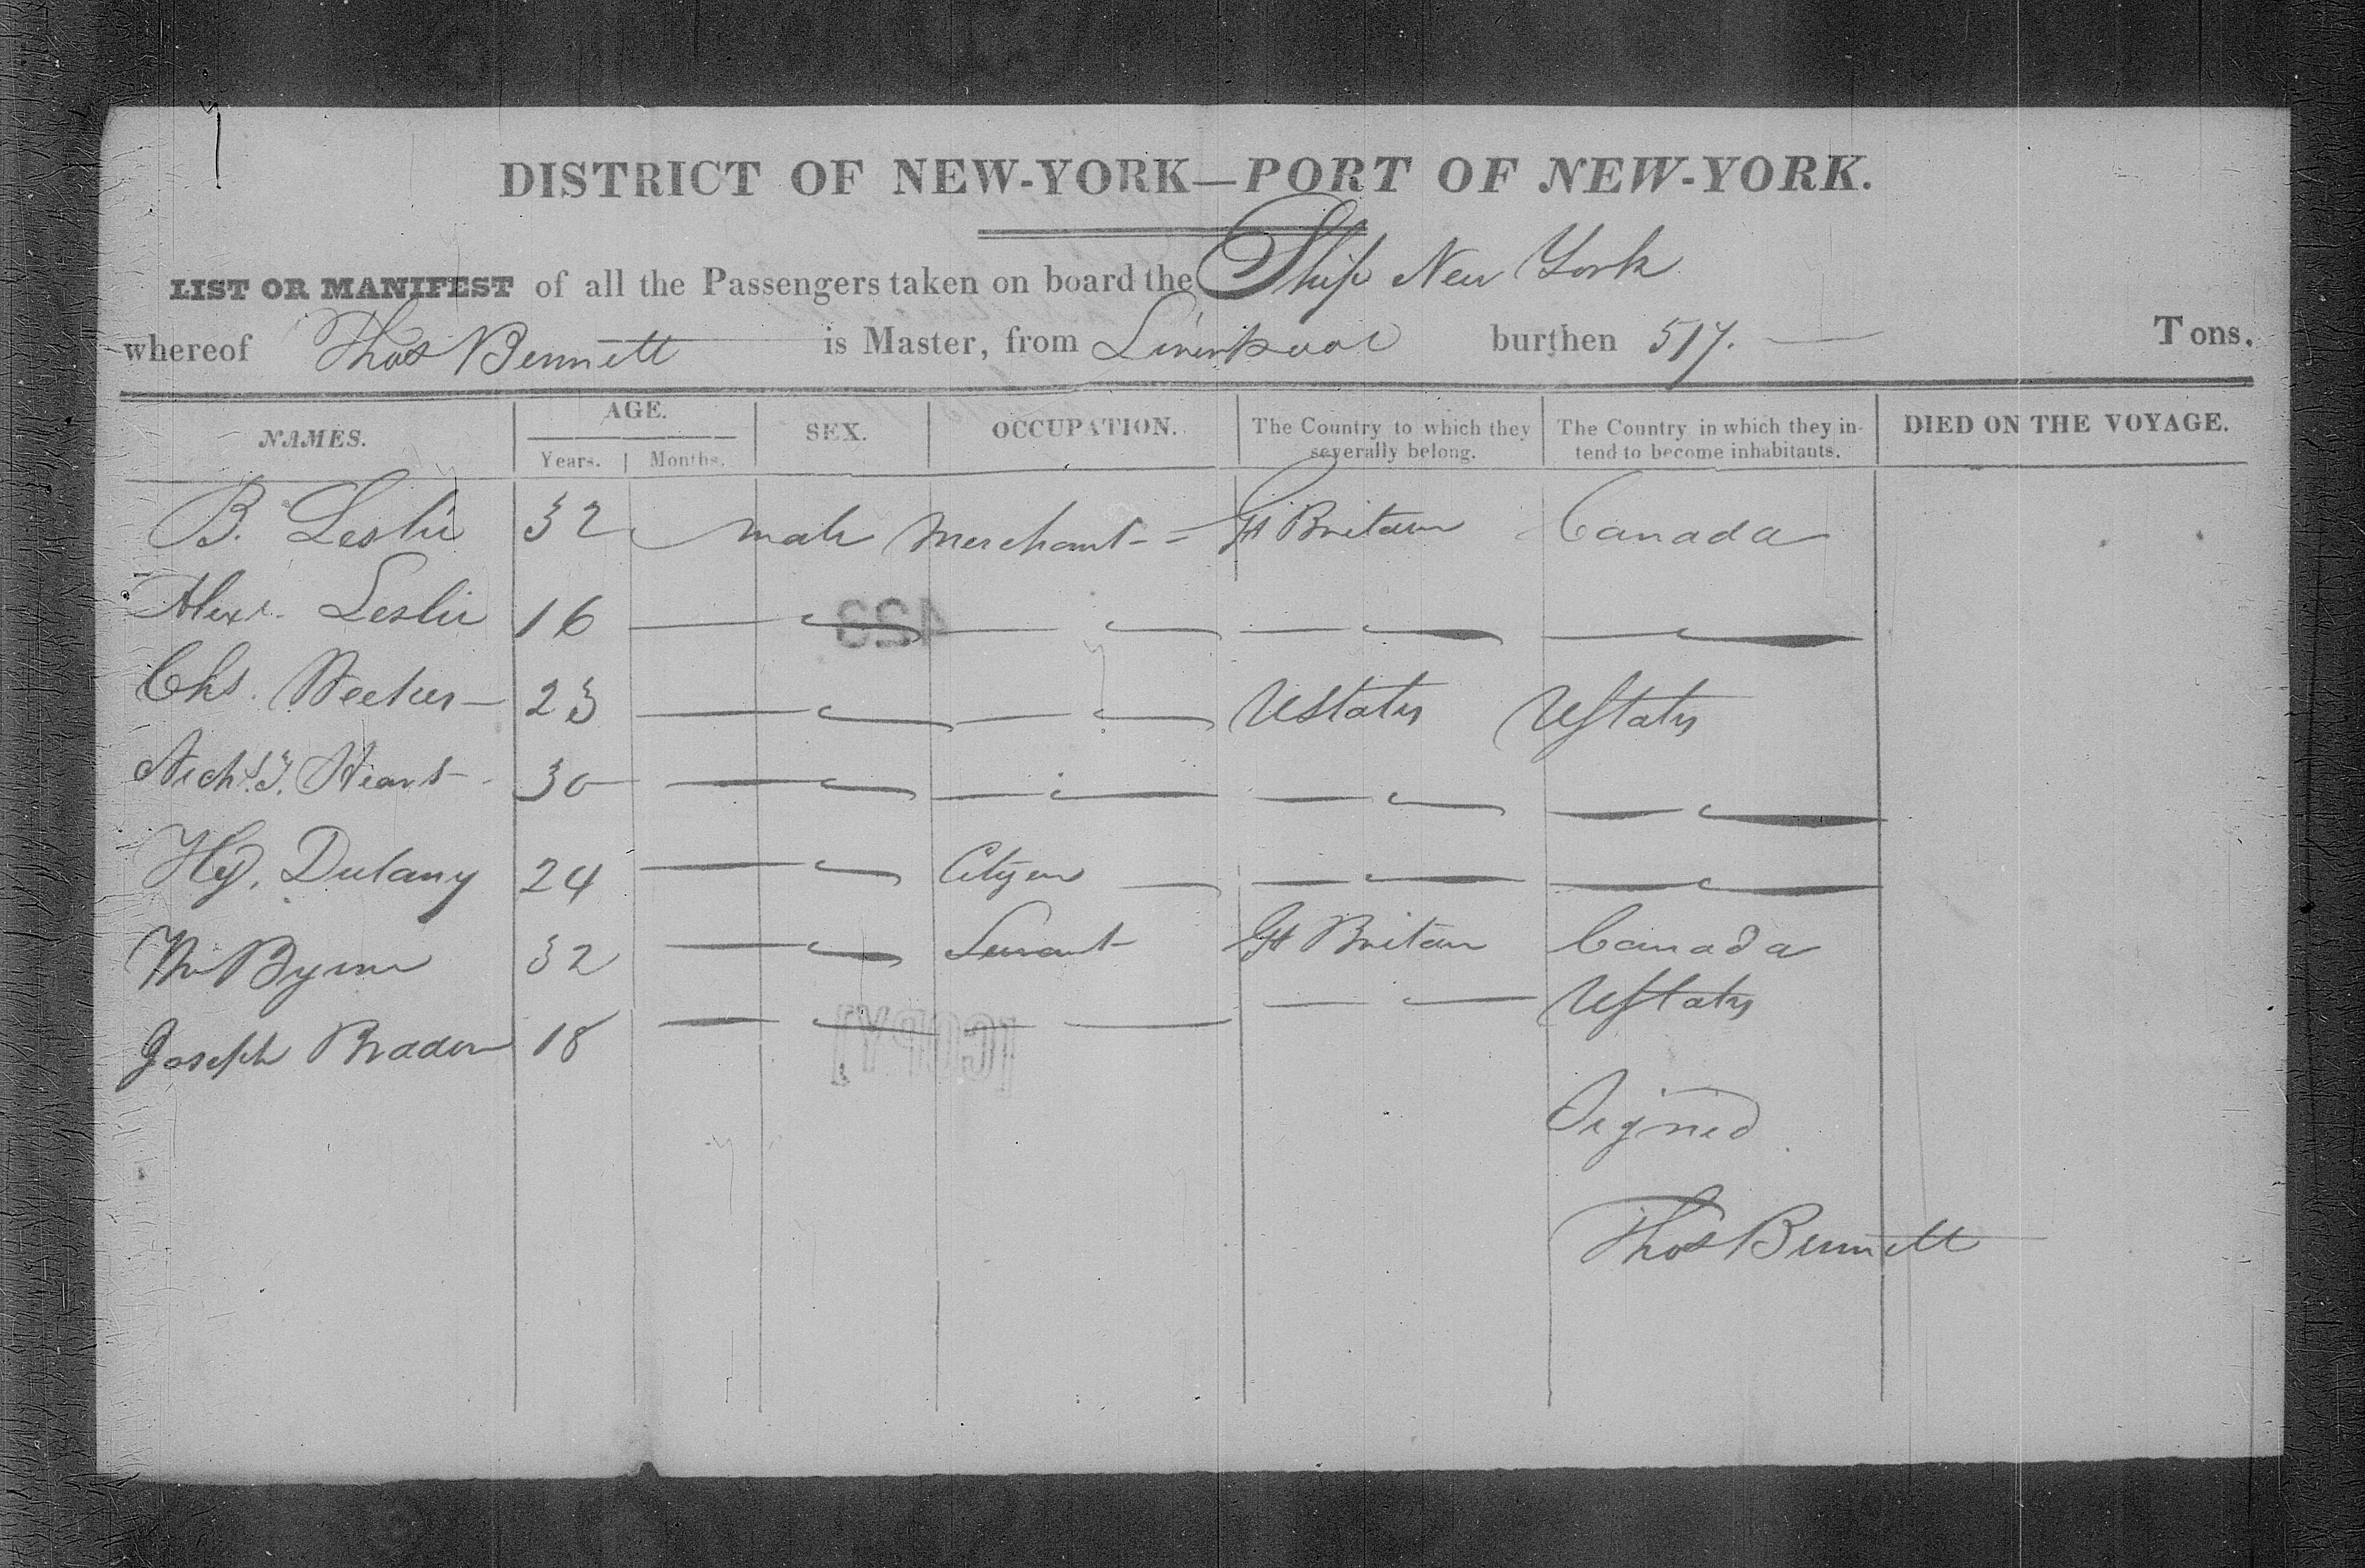 DISTRICT OF NEW-YORK—PORT OF NEW-YORK.
LIST OR MANIFEST of all the Passengers taken on board the Ship New York
whereof Thos Bennett is Master, from Liverpool burthen 517. Tons.
NAMES. AGE. SEX. OCCUPATION. The Country to which they severally belong. The Country in which they intend to become inhabitants. DIED ON THE VOYAGE.
Years. Months.
B. Leslie 32 male Merchant Gt Britain Canada
Alexr. Leslie 16
423
Chs. 23 UStates UStates
Nichs. 30
Hy. Dulany 24 Citizen
Wm Byrne 32 Servant Gt Britain Canada
Joseph Braden 18 UStates
[COPY]
Signed
Thos Bennett